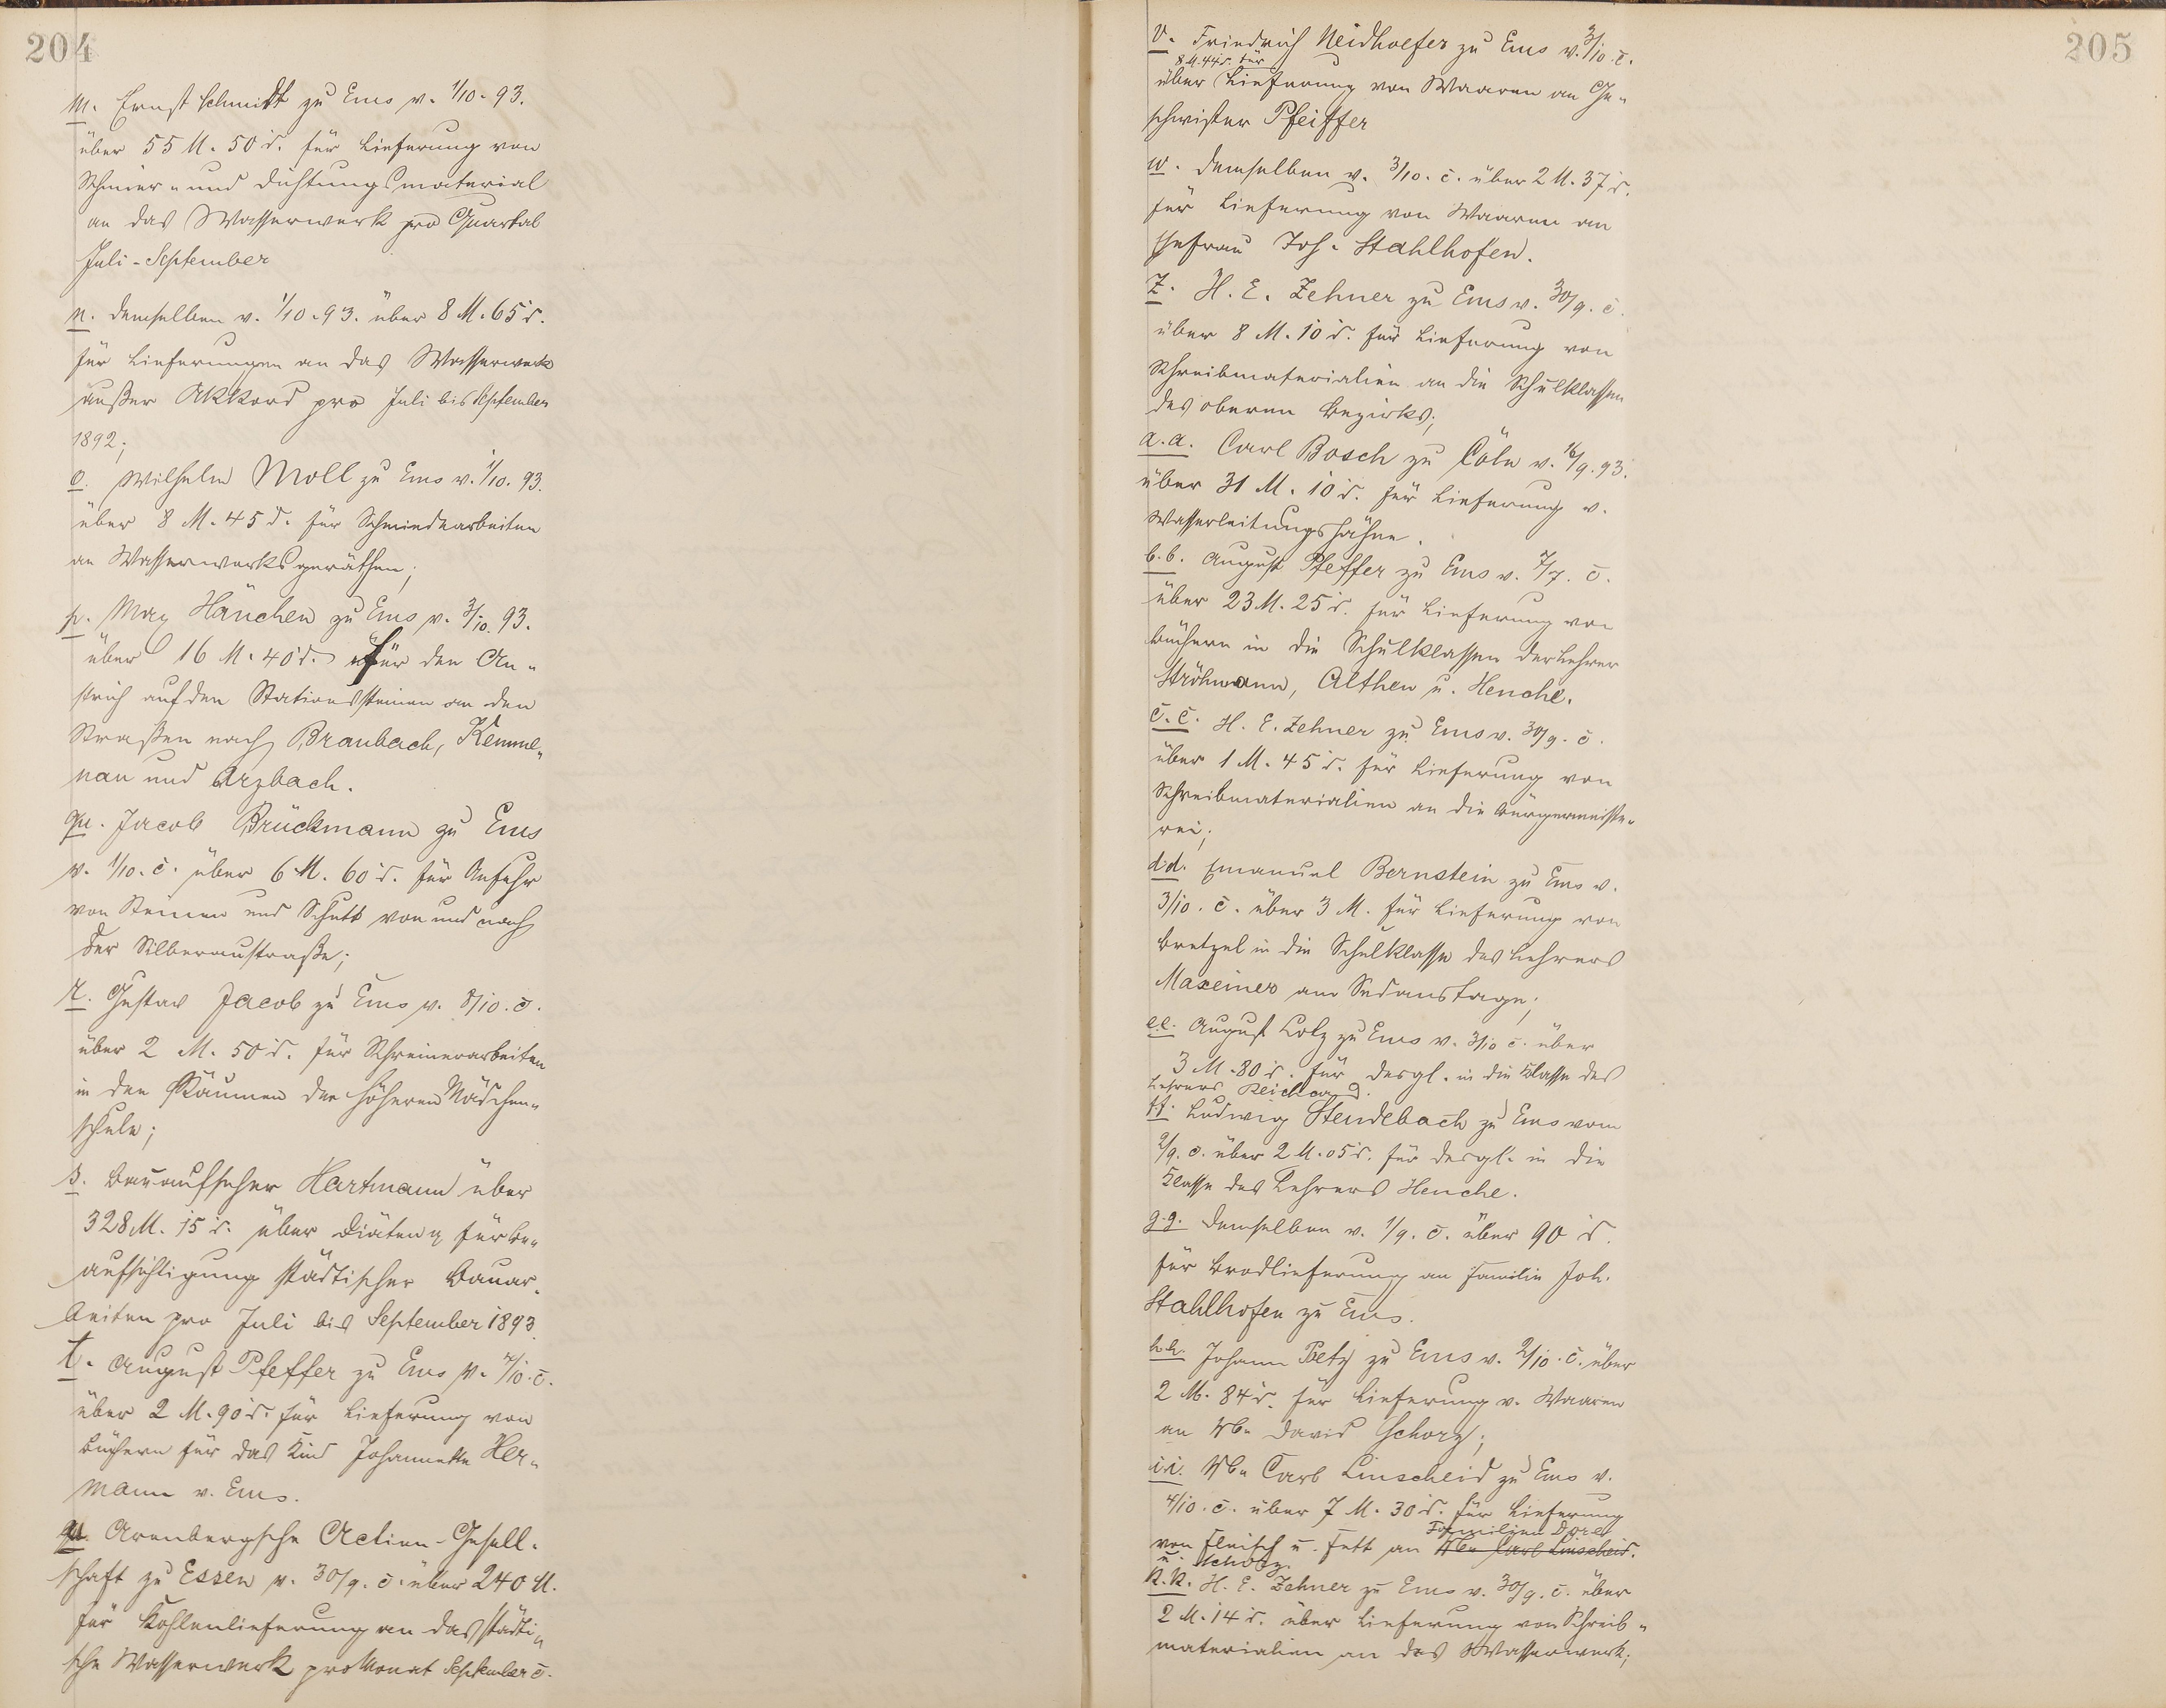 204
m. Ernst Schmidt zu Ems v. 1/10. 93.
über 55 M. 50 d. für Lieferung von
Schmier- und Dichtungsmaterial
an das Wasserwerk pro Quartal
Juli-September
n. demselben v. 1/10. 93. über 8 M. 65 d.
für Lieferungen an das Wasserwerk
außer Akkord pro Juli bis September
1892;
o. Wilhelm Moll zu Ems v. 1/10. 93.
über 8 M. 45 d. für Schmiedearbeiten
an Wasserwerksgeräthen;
p. Max Hänchen zu Ems v. 3/10. 93.
über 16 M. 40 d. für den An-
strich auf den Stationssteinen an den
Straßen nach Braubach, Kemme-
nau und Arzbach.
qu. Jacob Brückmann zu Ems
v. 1/10. c. über 6 M. 60 d. für Anfuhr
von Steinen und Schutt von und nach
der Silberaustraße;
r. Gustav Jacob zu Ems v. 3/10. c.
über 2 M. 50 d. für Schreinerarbeiten
in den Räumen der höheren Mädchen-
schule;
s. Bauaufseher Hartmann über
328 M. 15 d. über Diäten für Be-
aufsichtigung städtischer Bauar-
beiten pro Juli bis September 1893.
t. August Pfeffer zu Ems v. 4/10. c.
über 2 M. 90 d. für Lieferung von
Büchern für das Kind Johannette Her-
mann v. Ems.
u. Arenbergsche Actien-Gesell-
schaft zu Essen v. 30/9. c. über 240 M.
für Kohlenlieferung an das städti-
sche Wasserwerk pro Monat September c.
205
v. Friedrich Neidhoefer zu Ems v. 3/10. c.
8 M. 44 d. für
über Lieferung von Waaren an Ge-
schwister Pfeiffer
w. demselben v. 3/10. c. über 2 M. 37 d.
für Lieferung von Waaren an
Ehefrau Joh. Stahlhofen.
z. H. E. Zehner zu Ems v. 30/9. c.
über 8 M. 10 d. für Lieferung von
Schreibmaterialien an die Schulklassen
des oberen Bezirks;
a.a. Carl Bosch zu Cöln v. 16/9. 93.
über 31 M. 10 d. für Lieferung v.
Wasserleitungshähne.
b.b. August Pfeffer zu Ems v. 7/7. c.
über 23 M. 25 d. für Lieferung von
Büchern in die Schulklassen der Lehrer
Ströhmann, Althen u. Henche.
c.c. H. E. Zehner zu Ems v. 30/9. c.
über 1 M. 45 d. für Lieferung von
Schreibmaterialien an die Bürgermeiste-
rei;
dd. Emanuel Bernstein zu Ems v.
3/10. c. über 3 M. für Lieferung von
Bretzel in die Schulklasse des Lehrers
Maxeiner am Sedanstage;
e.e. August Lotz zu Ems v. 3/10 c. über
3 M. 80 d. für desgl. in die Klasse des
Lehrers Reichard.
ff. Ludwig Stendebach zu Ems vom
2/9. c. über 2 M. 05 d. für desgl. in die
Klasse des Lehrers Henche.
g.g. demselben v. 1/9. c. über 90 d.
für Brodlieferung an Familie Joh.
Stahlhofen zu Ems.
h.h. Johann Betz zu Ems v. 2/10. c. über
2 M. 84 d. für Lieferung v. Waaren
an Wb. David Schorz;
i.i. Wb. Carl Linscheid zu Ems v.
4/10. c. über 7 M. 30 d. für Lieferung
Familien Dorer
von Fleisch u. Fett an Wb. Carl Linscheid.
u. Schorz.
k.k. H. E. Zehner zu Ems v. 30/9. c. über
2 M. 14 d. über Lieferung von Schreib-
materialien an das Wasserwerk;